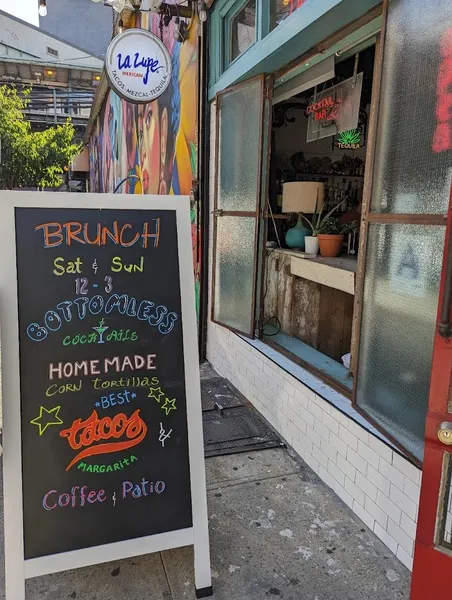 La Lupe
MEXICAN
TACOS·MEZCAL·TEQUILA
COCKTAIL
BAR
TEQUILA
A
BRUNCH
Sat & Sun
12 - 3
BOTTOMLESS
COCKTAILS
HOMEMADE
CORN TORTILLAS
*BEST*
tacos
&
MARGARITA
Coffee & Patio